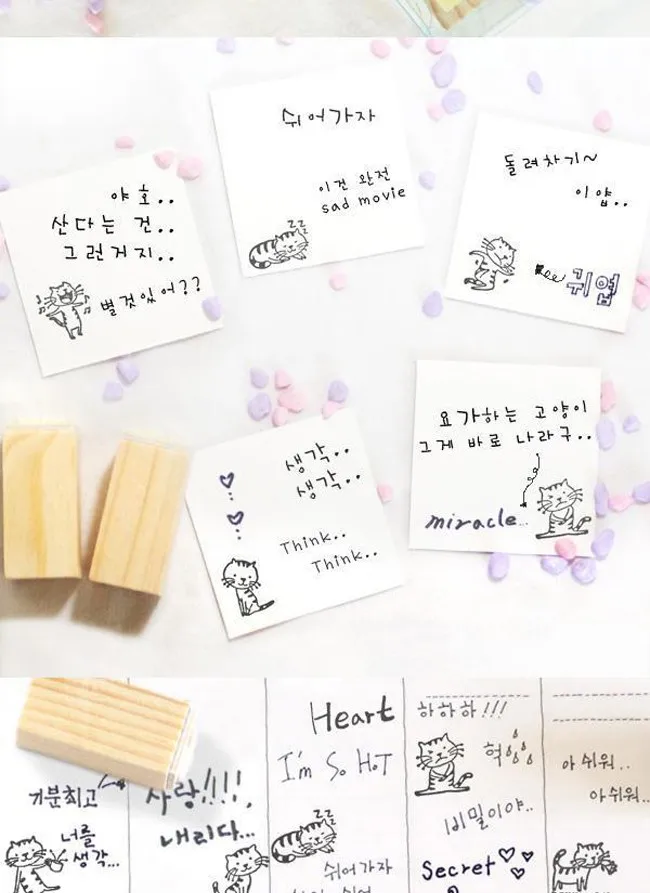 쉬어가자
이건 완전
sad movie
zz
돌려차기~
이얍..
귀엽
야호..
산다는 건..
그런거지..
별것있어??
생각..
생각..
Think..
Think..
요가하는 고양이
그게 바로 나라구..
miracle..
Heart
I'm So HoT
zz
쉬어가자
하하하!!!
헉
비밀이야..
Secret
아쉬워..
아쉬워..
기분최고
너를
생각...
사랑!!!!,
내리다...